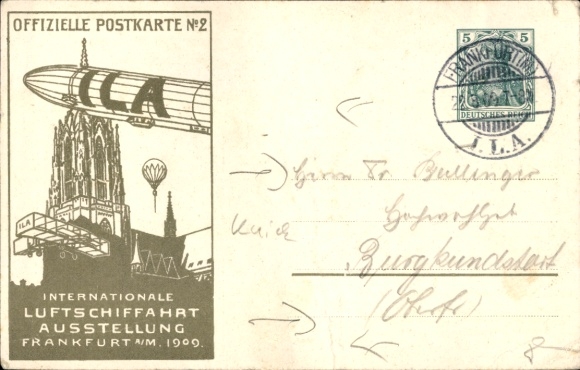 OFFIZIELLE POSTKARTE No 2
ILA
ILA
INTERNATIONALE
LUFTSCHIFFAHRT
AUSSTELLUNG
FRANKFURT A/M. 1909.
5 5
DEUTSCHES REICH
FRANKFURT (MAIN)
I. L. A.
Herrn Dr. Bullinger
Hochwohlgeb
Burgkundstadt
(Oberfr.)